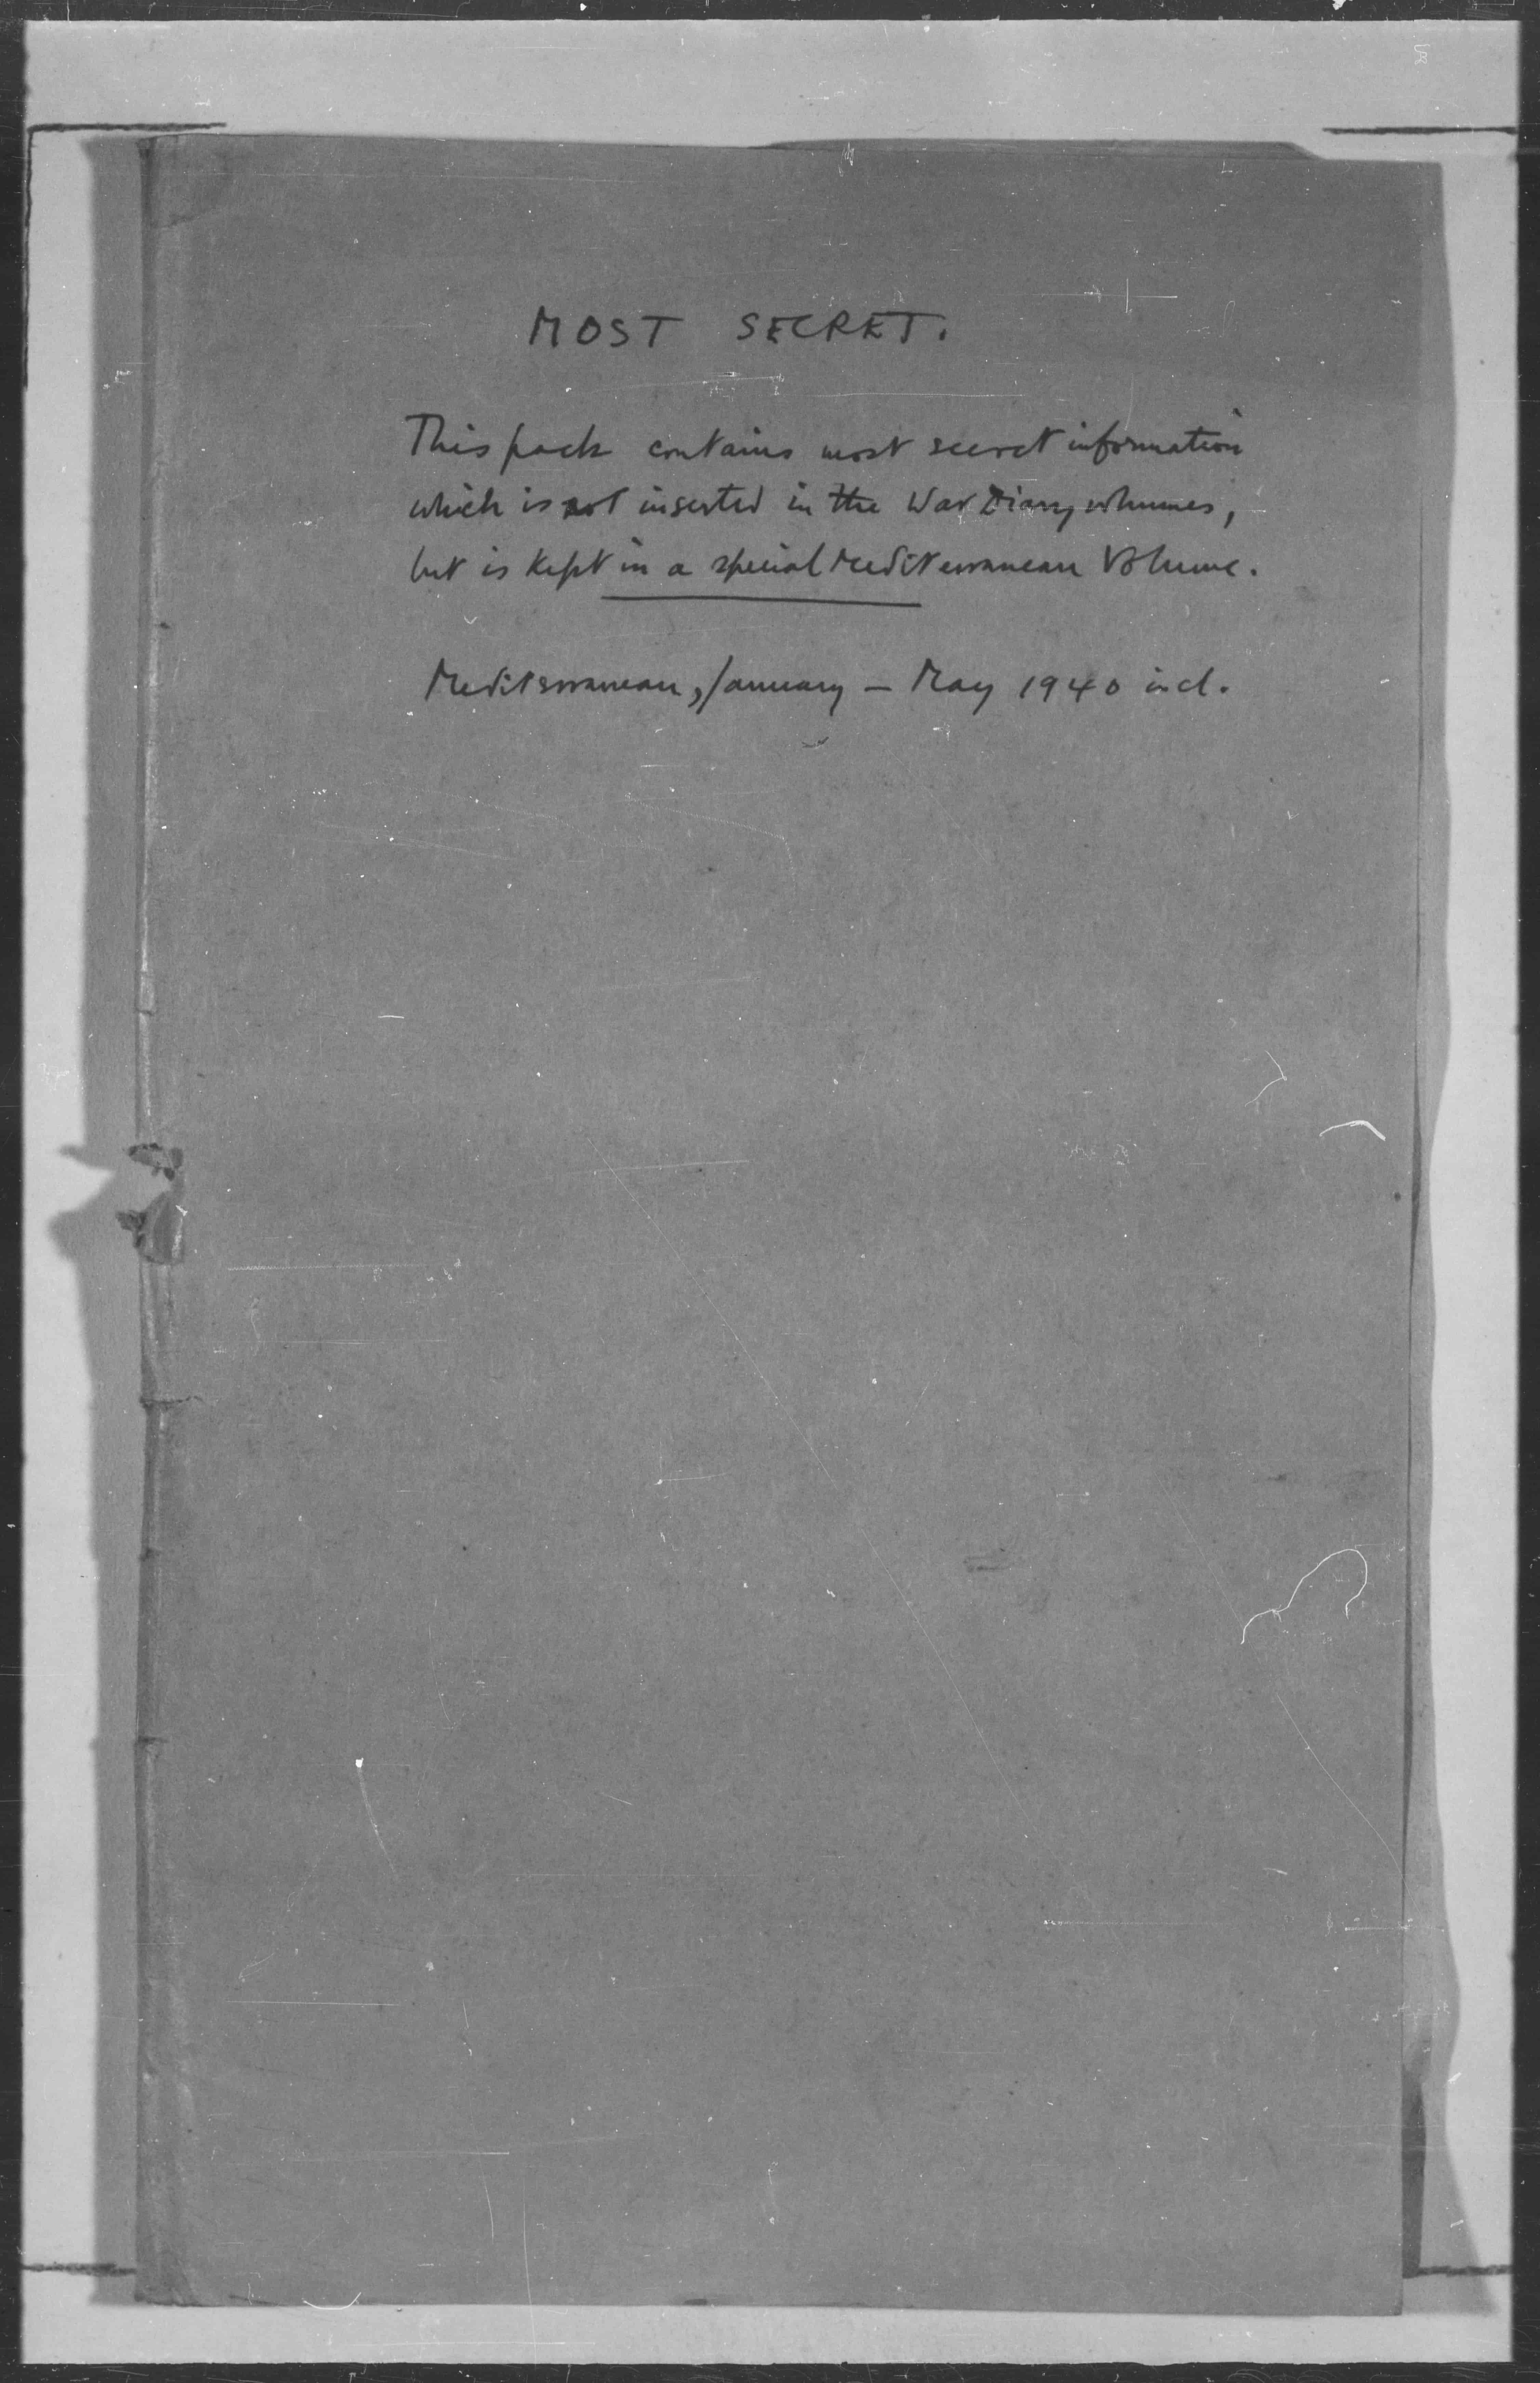 MOST SECRET.
This pack contains most secret information
which is not inserted in the War Diary volumes,
but is kept in a special Mediterranean Volume.
Mediterranean, January - May 1940 incl.